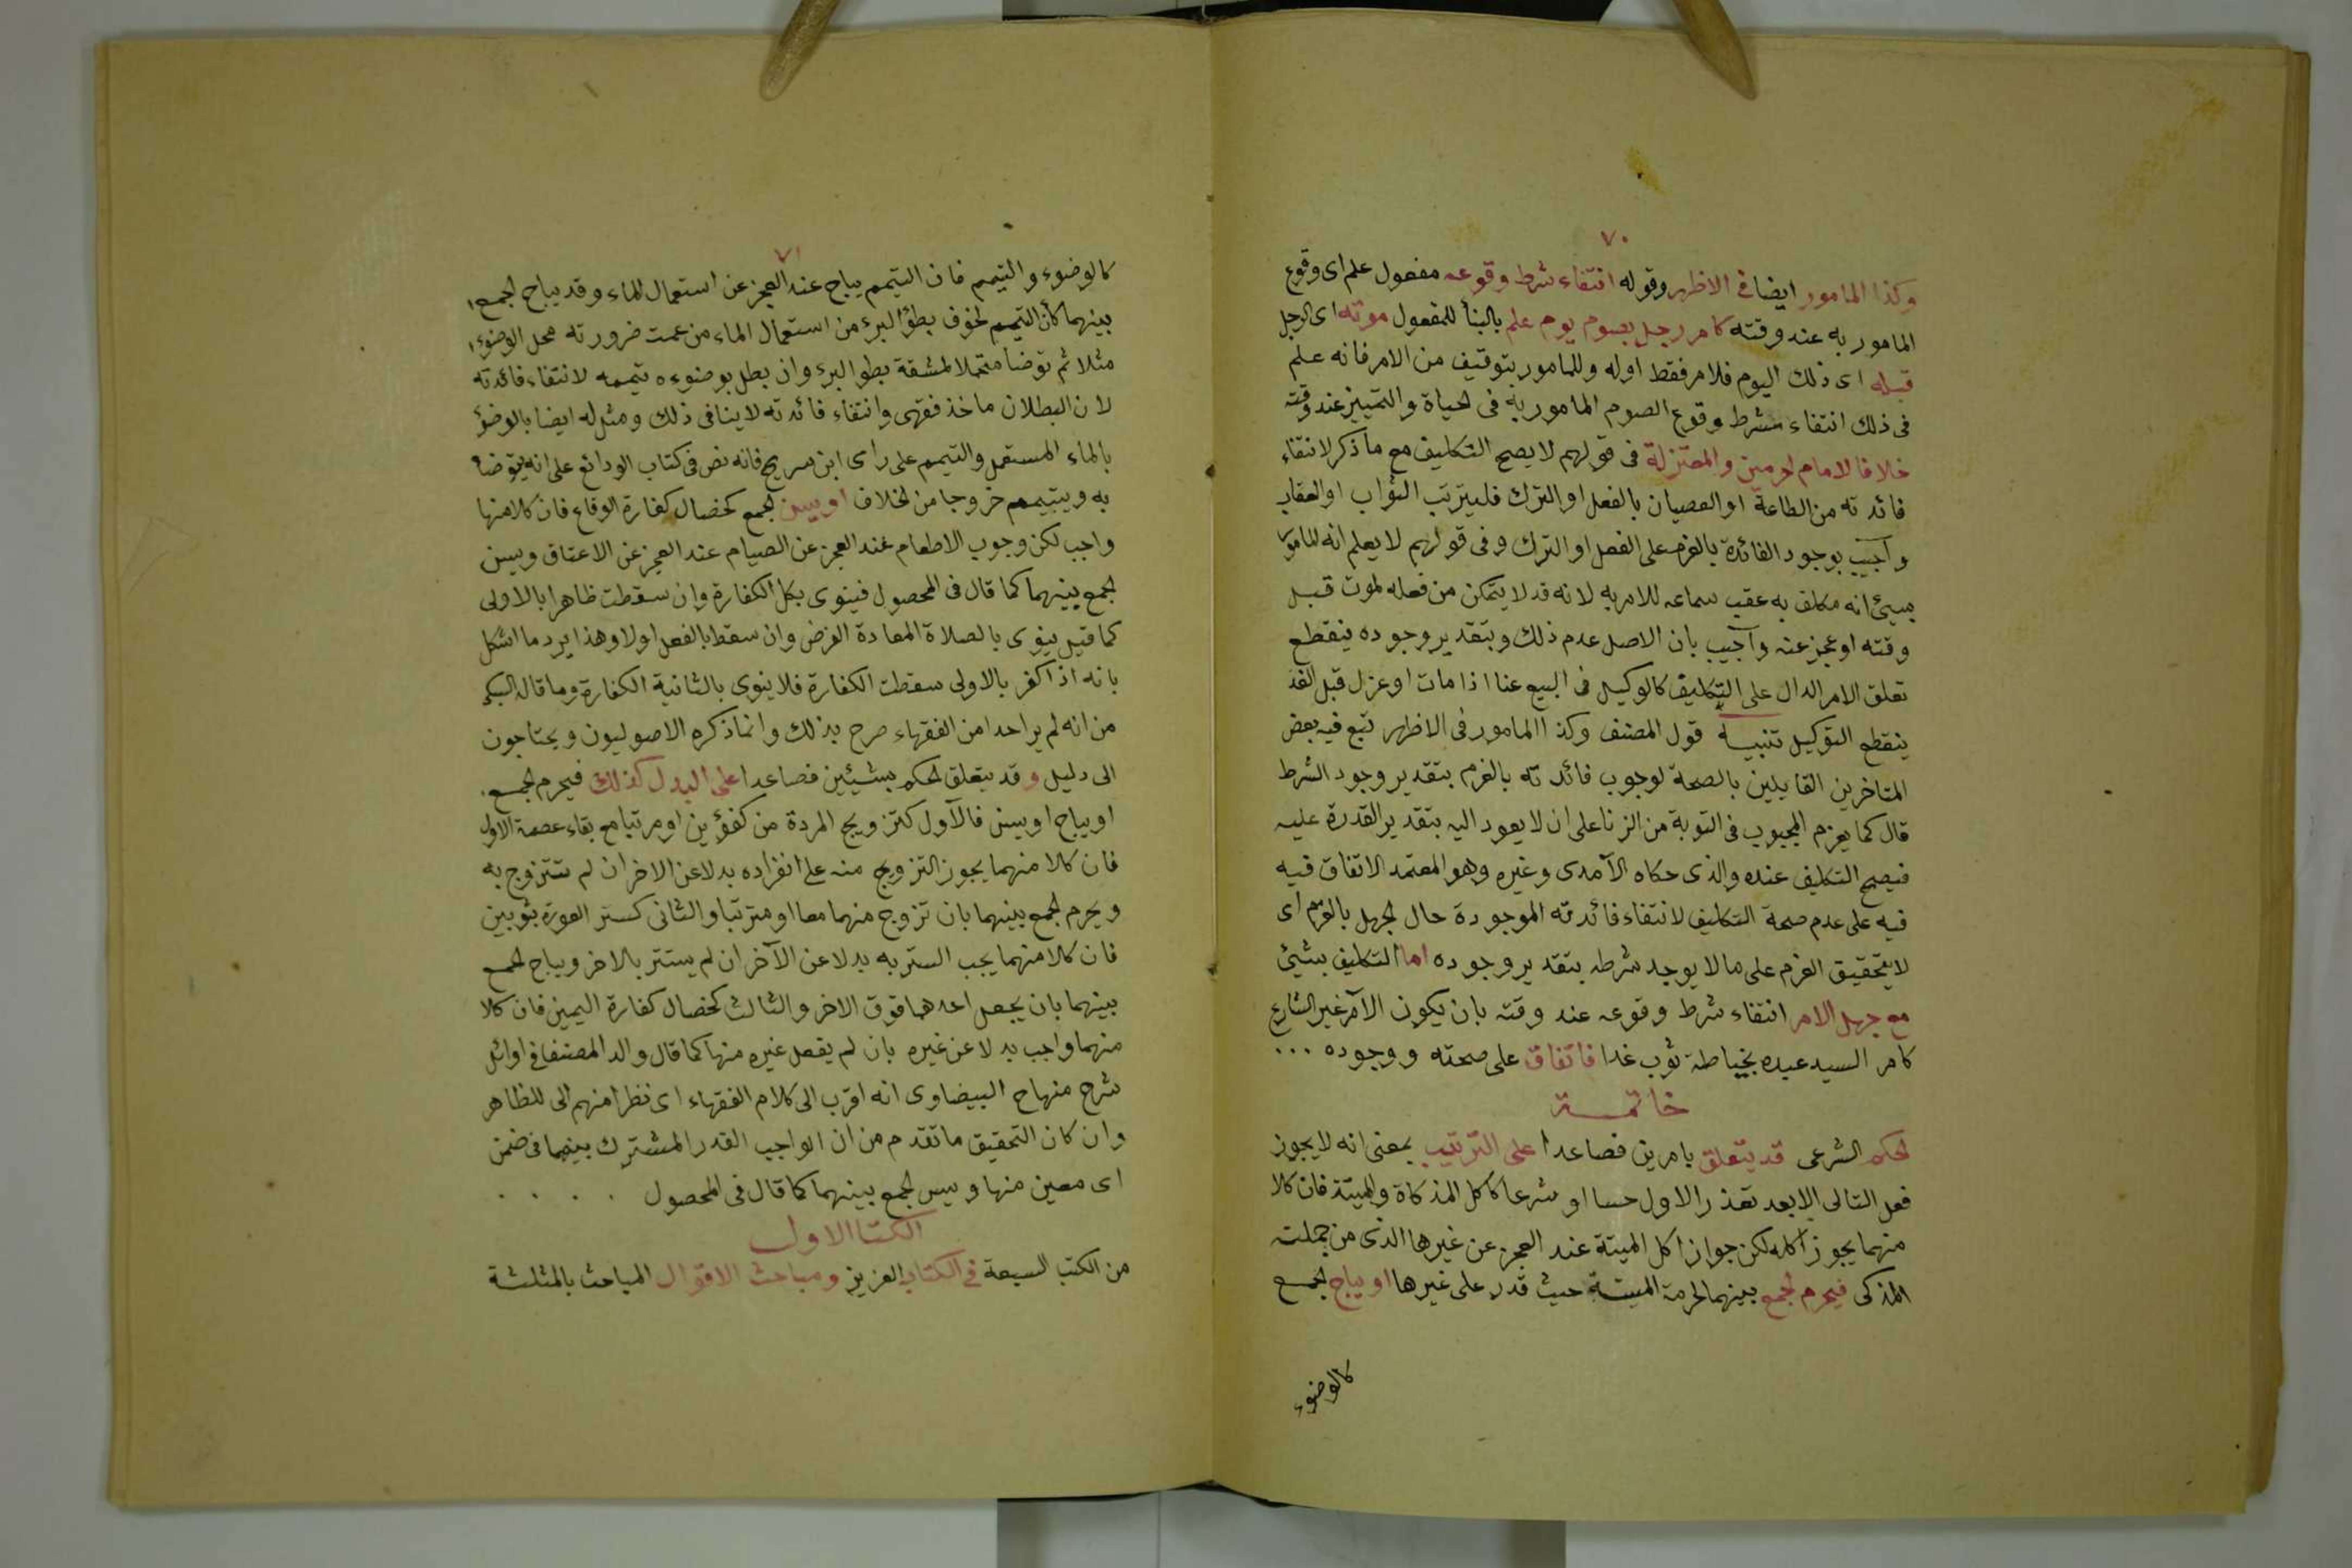 ٧٠
وكذا المامور ايضا في الاظهر وقوله انتفاء شرط وقوعه مفعول علم اى وقوع
المامور به عند وقته كامر رجل بصوم يوم علم بالبنأ للمفعول موته اى الرجل
قبله اى ذلك اليوم فلامر فقط اوله وللمامور بتوقيف من الامر فانه علم
فى ذلك انتفاء شرط وقوع الصوم المامور به فى الحياة والتمييز عند وقته
خلافا لامام الحرمين والمعتزلة فى قولهم لا يصح التكليف مع ما ذكر لانتفاء
فائدته من الطاعة او العصيان بالفعل او الترك فليترتب الثواب او العقاب
وأجيب بوجود الفائدة بالعزم على الفعل او الترك وفى قولهم لا يعلم انه المامور
بشيئ انه مكلف به عقب سماعه للامر به لانه قد لا يتمكن من فعله لموت قبل
وقته او عجز عنه وأجيب بان الاصل عدم ذلك وبتقدير وجوده ينقطع
تعلق الامر الدال على التكليف كالوكيل فى البيع عنا اذا مات او عزل قبل الغد
ينقطع التوكيل تنبيه قول المصنف وكذا المامور فى الاظهر تبع فيه بعض
المتاخرين القايلين بالصحة لوجوب فائدته بالعزم بتقدير وجود الشرط
قال كما يعزم المجبوب فى التوبة من الزنا على ان لا يعود اليه بتقدير القدرة عليه
فيصح التكليف عنده والذى حكاه الآمدى وغيره وهو المعتمد الاتفاق فيه
فيه على عدم صحة التكليف لانتفاء فائدته الموجودة حال الجهل بالعزم اى
لا يتحقيق العزم على ما لا يوجد شرطه بتقدير وجوده اما التكليف بشيئ
مع جهل الامر انتفاء شرط وقوعه عند وقته بان يكون الآمر غير الشارع
كامر السيد عبده بخياطة ثوب غدا فاتفاق على صحته ووجوده ...
خاتمة
الحكم الشرعى قد يتعلق بامرين فصاعدا على الترتيب بمعنى انه لا يجوز
فعل التالى الا بعد تعذر الاول حسا او شرعا كاكل المذكاة والميتة فان كلا
منهما يجوز اكله لكن جواز اكل الميتة عند العجز عن غيرها الذى من جملته
المذكى فيحرم الجمع بينهما لحرمة الميتة حيث قدر على غيرها او يباح الجمع
كالوضوء
٧١
كالوضوء والتيمم فان التيمم يباح عند العجز عن استعمال الماء وقد يباح الجمع
بينهما كأن التيمم لخوف بطؤ البرء من استعمال الماء من عمت ضرورته محل الوضوء
مثلا ثم توضا متحملا لمشقة بطوا البرء وان بطل بوضوءه تيممه لانتفاء فائدته
لان البطلان ماخذ فقهى وانتفاء فائدته لا ينافى ذلك ومثل له ايضا بالوضؤ
بالماء المستعمل والتيمم على راى ابن سريج فانه نص فى كتاب الودائع على انه يتوضا
به ويتيمم خروجا من الخلاف او يسن الجمع كخصال كفارة الوقاع فان كلا منها
واجب لكن وجوب الاطعام عند العجز عن الصيام عند العجز عن الاعتاق ويسن
الجمع بينهما كما قال فى المحصول فينوى بكل الكفارة وان سقطت ظاهرا بالاولى
كما قيل ينوى بالصلاة المعادة الفرض وان سقط بالفعل اولا وهذا يرد ما اشكل
بانه اذا كفر بالاولى سقطت الكفارة فلا ينوى بالثانية الكفارة وما قاله السبكى
من انه لم ير احدا من الفقهاء صرح بذلك وانما ذكره الاصوليون ويحتاجون
الى دليل وقد يتعلق الحكم بشيئين فصاعدا على البدل كذلك فيحرم الجمع
او يباح او يسن فالأول كتزويج المردة من كفؤين او مرتبا مع بقاء عصمة الاول
فان كلا منهما يجوز التزويج منه على انفراده بدلا عن الاخر ان لم تتزوج به
ويحرم الجمع بينهما بان تزوج منهما معا او مترتبا والثانى كستر العورة بثوبين
فان كلا منهما يجب الستر به بدلا عن الآخر ان لم يستتر بالاخر ويباح الجمع
بينهما بان يجعل احدهما فوق الاخر والثالث كخصال كفارة اليمين فان كلا
منهما واجب بدلا عن غيره بان لم يفعل غيره منها كما قال والد المصنف في اوائل
شرح منهاج البيضاوى انه اقرب الى كلام الفقهاء اى نظرا منهم الى للظاهر
وان كان التحقيق ما تقدم من ان الواجب القدر المشترك بينهما فى ضمن
اى معين منها ويسن الجمع بينهما كما قال فى المحصول . . . .
الكتا الاول
من الكتب السبعة في الكتاب العزيز ومباحث الاقوال المباحث بالمثلثة